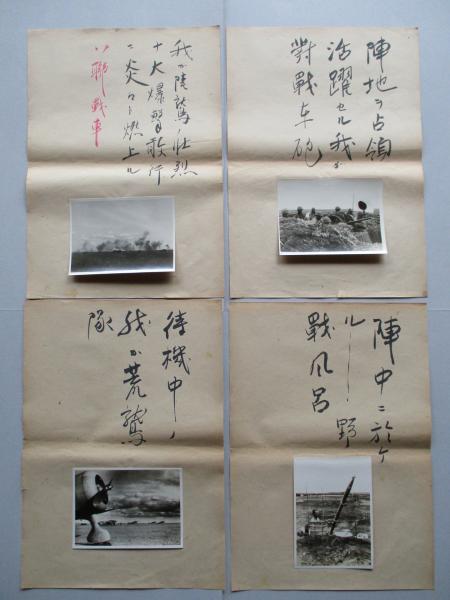 陣地ヲ占領
活躍セル我ガ
對戰车砲
我ガ陸鷲ノ壮烈
ナ大爆撃敢行
ニ炎々ト燃上ル
ソ聯戦車
陣中ニ於ケ
ル野
戰風呂
待機中ノ
我ガ荒鷲
隊